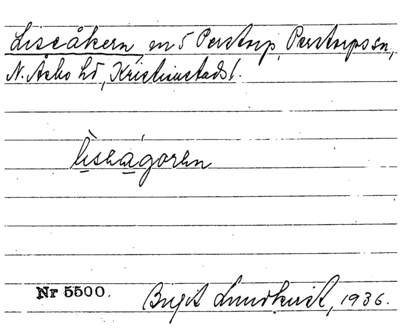 Liscåkern, en 5 Perstorp, Perstorps sn,
N. Åsbo hd, Kristianstads l.
lìseágorhn
Nr 5500.
Birgit Lundkvist, 1936.